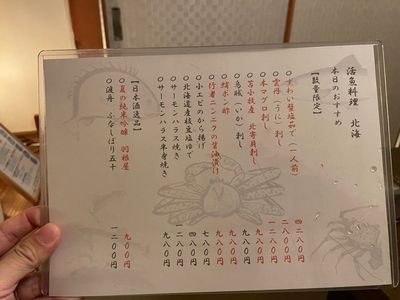 活魚料理 北海
本日のおすすめ
【数量限定】
〇ずわい蟹塩茹で（一人前） 四二八〇円
〇雲丹（うに）刺し 二八〇〇円
〇本マグロ刺し 一二八〇円
〇苫小牧産 北寄貝刺し 九八〇円
〇烏賊（いか）刺し 九八〇円
ポン酢 九八〇円
〇行者ニンニクの醤油漬け 九八〇円
〇小エビのから揚げ 七八〇円
〇北海道産枝豆塩ゆで 四八〇円
〇サーモンハラス焼き 一二八〇円
〇サーモンハラス半身焼き 九八〇円
【日本酒逸品】
〇夏の純米吟醸 羽根屋 九〇〇円
〇渡舟 ふなしぼり五十 一二〇〇円